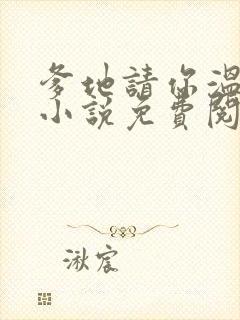 爹地請你溫
小說免費閱
湫宸